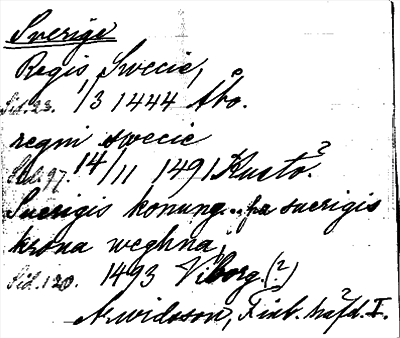 Sverige
Regis Swecie,
Sid. 23. 1/3 1444 Åbo.
regni swecie
Sid. 97. 14/11 1491 Kustö.
Suerigis konung .. pa suerigis
krona weghna,
Sid. 120. 1493 Viborg. (?)
Arwidsson, Finl. häfd. I.